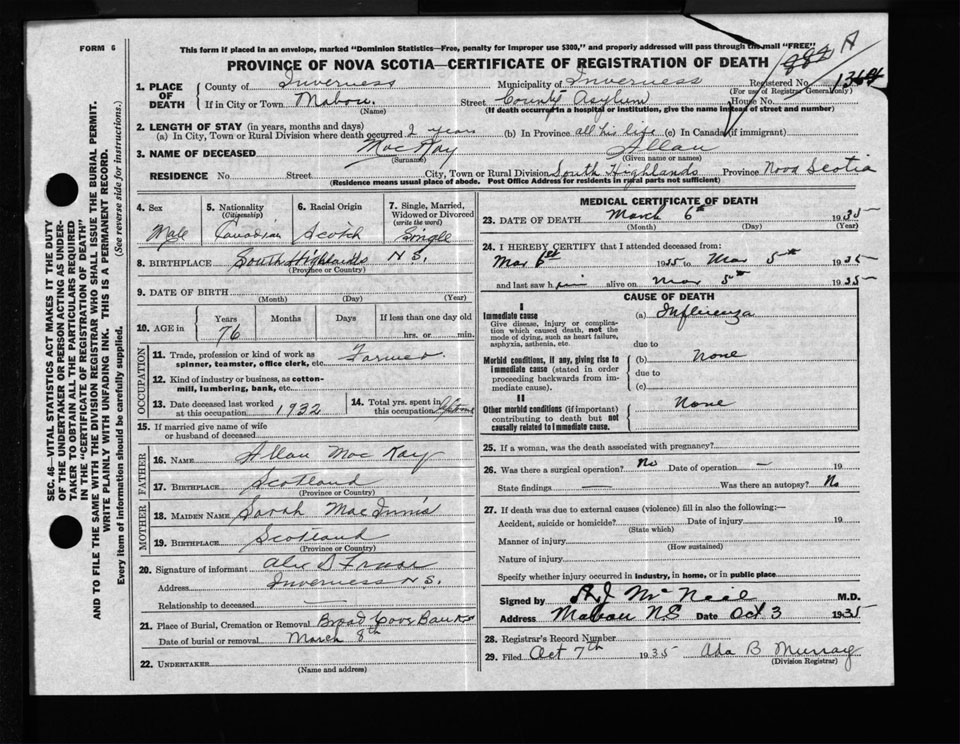 FORM 6
This form if placed in an envelope, marked "Dominion Statistics—Free, penalty for improper use $300," and properly addressed will pass through the mail "FREE"
PROVINCE OF NOVA SCOTIA—CERTIFICATE OF REGISTRATION OF DEATH
A
1. PLACE OF DEATH
County of Inverness
Municipality of Inverness
Registered No.
(For use of Registrar General only)
If in City or Town Mabou.
(Name)
Street County Asylum House No.
(If death occurred in a hospital or institution, give the name instead of street and number)
2. LENGTH OF STAY (in years, months and days)
(a) In City, Town or Rural Division where death occurred 2 years (b) In Province all his life (c) In Canada (if immigrant)
3. NAME OF DECEASED Mac Kay Allan
(Surname) (Given name or names)
RESIDENCE No. Street City, Town or Rural Division South Highlands Province Nova Scotia
(Residence means usual place of abode. Post Office Address for residents in rural parts not sufficient)
4. Sex
Male
5. Nationality
(Citizenship)
Canadian
6. Racial Origin
Scotch
7. Single, Married, Widowed or Divorced
(write the word)
Single
8. BIRTHPLACE South Highlands N.S.
(Province or Country)
9. DATE OF BIRTH
(Month) (Day) (Year)
10. AGE in
Years Months Days If less than one day old
76 hrs. or min.
OCCUPATION
11. Trade, profession or kind of work as spinner, teamster, office clerk, etc. Farmer
12. Kind of industry or business, as cotton-mill, lumbering, bank, etc.
13. Date deceased last worked at this occupation 1932
14. Total yrs. spent in this occupation
15. If married give name of wife or husband of deceased
FATHER
16. NAME Allan Mac Kay
17. BIRTHPLACE Scotland
(Province or Country)
MOTHER
18. MAIDEN NAME Sarah MacInnis
19. BIRTHPLACE Scotland
(Province or Country)
20. Signature of informant Alex D Fraser
Address Inverness N.S.
Relationship to deceased —
21. Place of Burial, Cremation or Removal Broad Cove Banks
Date of burial or removal March 8th
22. UNDERTAKER
(Name and address)
MEDICAL CERTIFICATE OF DEATH
23. DATE OF DEATH March 6th 1935
(Month) (Day) (Year)
24. I HEREBY CERTIFY that I attended deceased from:
1935 to Mar 5th 1935
and last saw him alive on Mar 5th 1935
CAUSE OF DEATH
I
Immediate cause
Give disease, injury or complication which caused death, not the mode of dying, such as heart failure, asphyxia, asthenia, etc.
(a) Influenza
due to
Morbid conditions, if any, giving rise to immediate cause (stated in order proceeding backwards from immediate cause).
(b) None
due to
(c)
II
Other morbid conditions (if important) contributing to death but not causally related to immediate cause.
None
25. If a woman, was the death associated with pregnancy?
26. Was there a surgical operation? No Date of operation — 19
State findings — Was there an autopsy? No
27. If death was due to external causes (violence) fill in also the following:—
Accident, suicide or homicide? Date of injury 19
(State which)
Manner of injury
(How sustained)
Nature of injury
Specify whether injury occurred in industry, in home, or in public place
Signed by A.J McNeil M.D.
Address Mabou N.S Date Oct 3 1935
28. Registrar's Record Number
29. Filed Oct 7th 1935 Ada B Murray
(Division Registrar)
SEC. 46—VITAL STATISTICS ACT MAKES IT THE DUTY
OF THE UNDERTAKER OR PERSON ACTING AS UNDER-
TAKER TO OBTAIN ALL THE PARTICULARS REQUIRED
IN THE "CERTIFICATE OF REGISTRATION OF DEATH"
AND TO FILE THE SAME WITH THE DIVISION REGISTRAR WHO SHALL ISSUE THE BURIAL PERMIT.
WRITE PLAINLY WITH UNFADING INK. THIS IS A PERMANENT RECORD.
Every item of information should be carefully supplied. (See reverse side for instructions.)